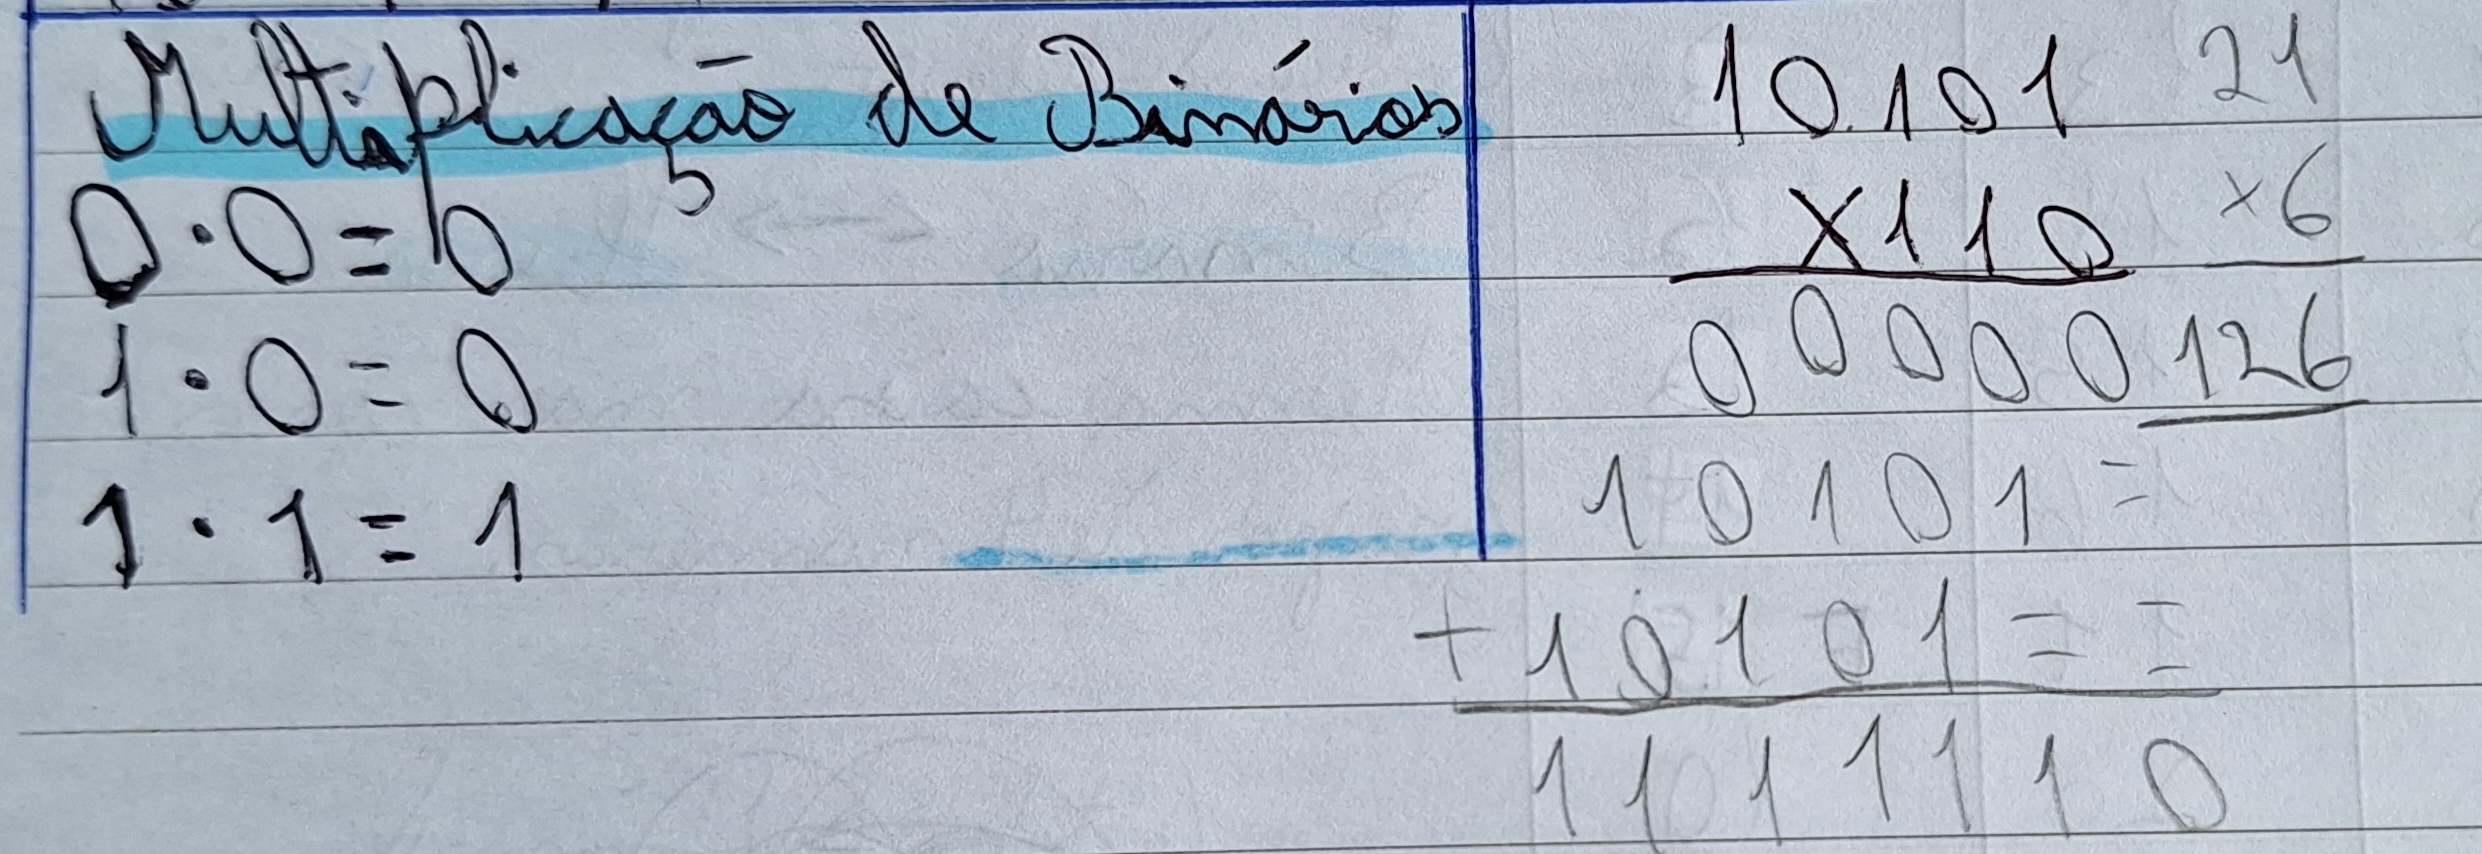 Multiplicação de Binários
0 · 0 = 0
1 · 0 = 0
1 · 1 = 1
10101
x110
00000
10101=
+10101==
1111110
21
x6
126